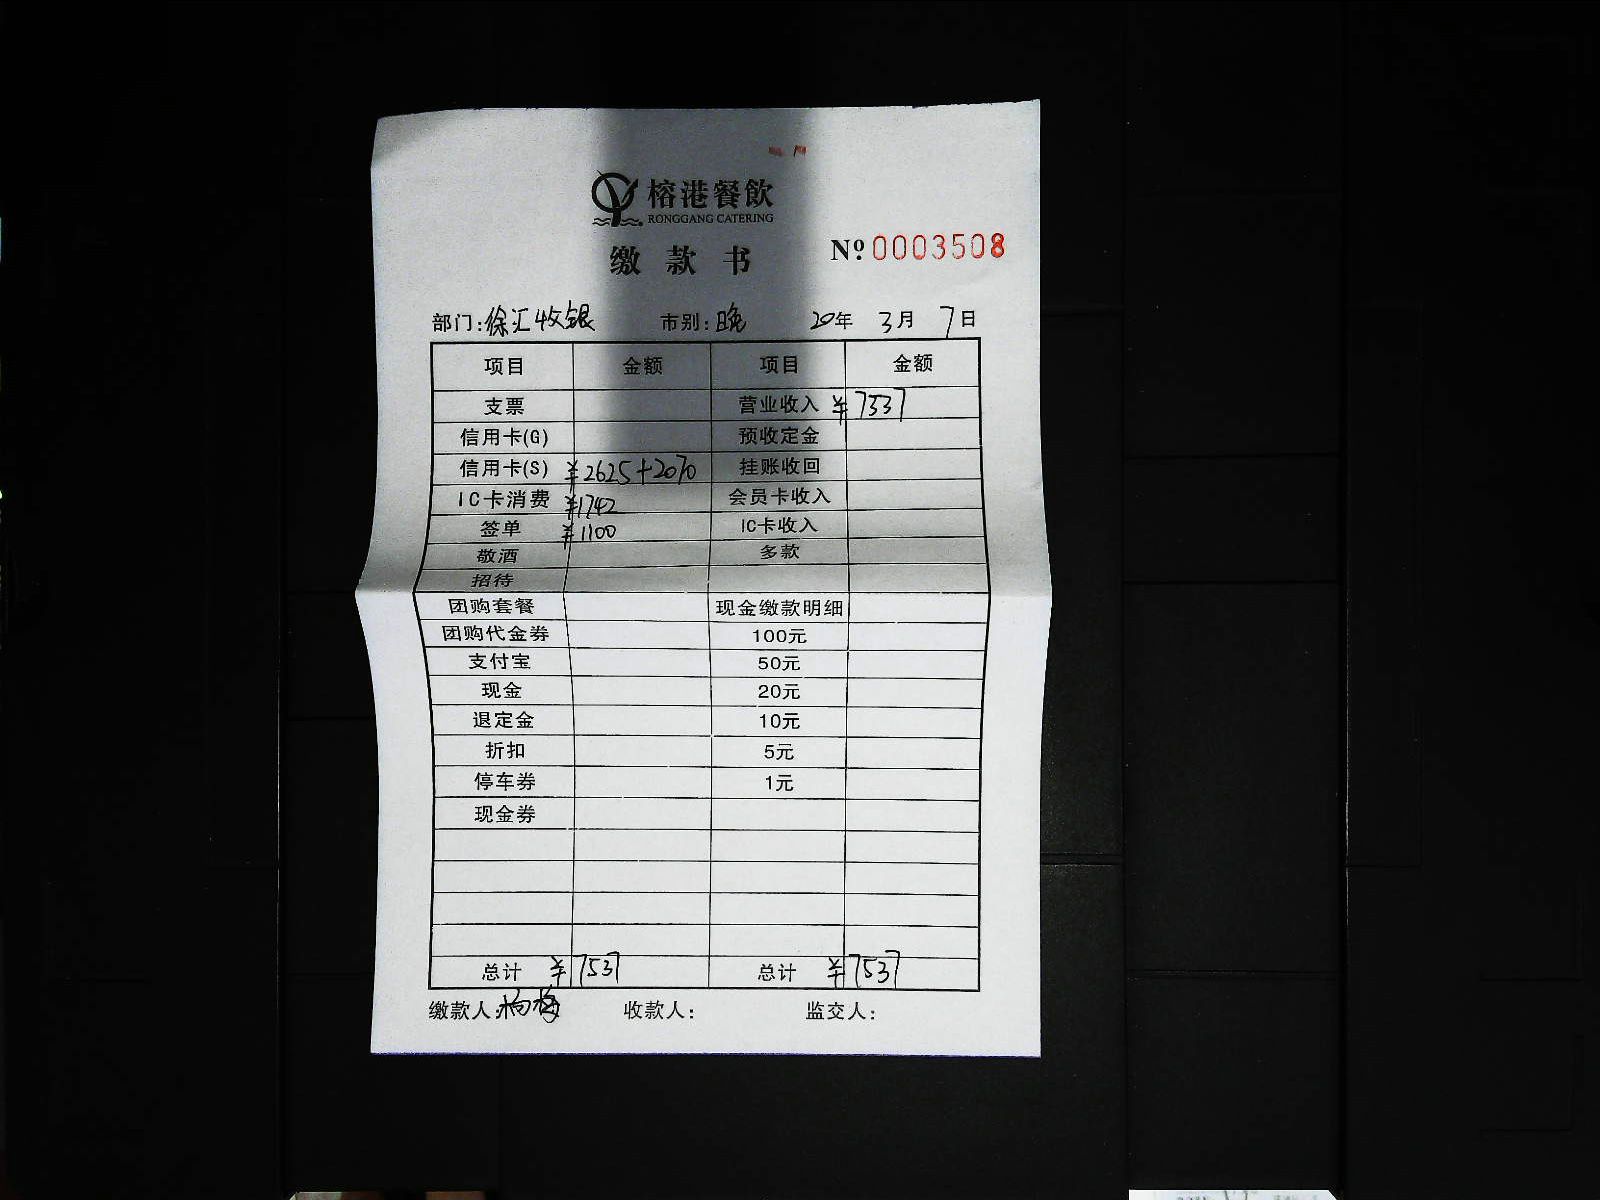 榕港餐飲
RONGGANG CATERING
缴款书 Nº 0003508
部门:徐汇收银 市别:晚 20年 3月 7日
项目 金额 项目 金额
支票 营业收入 ¥7537
信用卡(G) 预收定金
信用卡(S) ¥2625+2070 挂账收回
IC卡消费 ¥1742 会员卡收入
签单 ¥1100 IC卡收入
敬酒 多款
招待
团购套餐 现金缴款明细
团购代金券 100元
支付宝 50元
现金 20元
退定金 10元
折扣 5元
停车券 1元
现金券
总计 ¥7537 总计 ¥7537
缴款人:杨梅 收款人: 监交人: